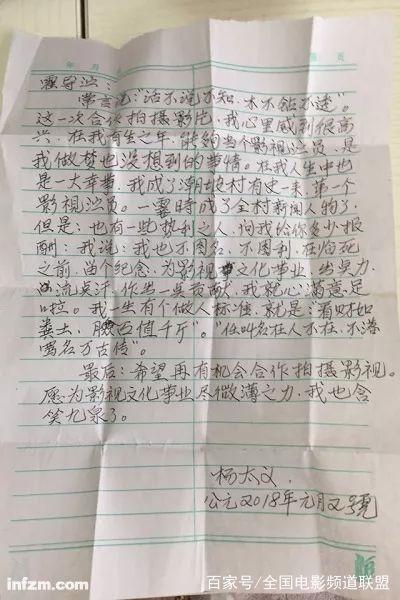 年 月
页
霍导演:
常言说:“话不说不知,木不钻不透”。
这一次合作拍摄影片,我心里感到很高
兴,在我有生之年,能够当个影视演员,是
我做梦也没想到的事情。在我人生中也
是一大幸事,我成了潮坡村有史一来,第一个
影视演员。一霎時成了全村新闻人物了,
但是:也有一些势利之人,问我给你多少报
酬:我说:我也不图名,不图利,在临死
之前,留个纪念,为影视文化事业,出点力
流点汗。作出一点贡献,我就心满意足
啦。我一生有个做人标准,就是:“看财如
粪土,值千斤”。“任叫名在人不在,不落
骂名万古传”。
最后:希望再有机会合作拍摄影视。
愿为影视文化事业尽做薄之力,我也含
笑九泉了。
杨太义.
公元2018年元月2號
infzm.com
百家号/全国电影频道联盟